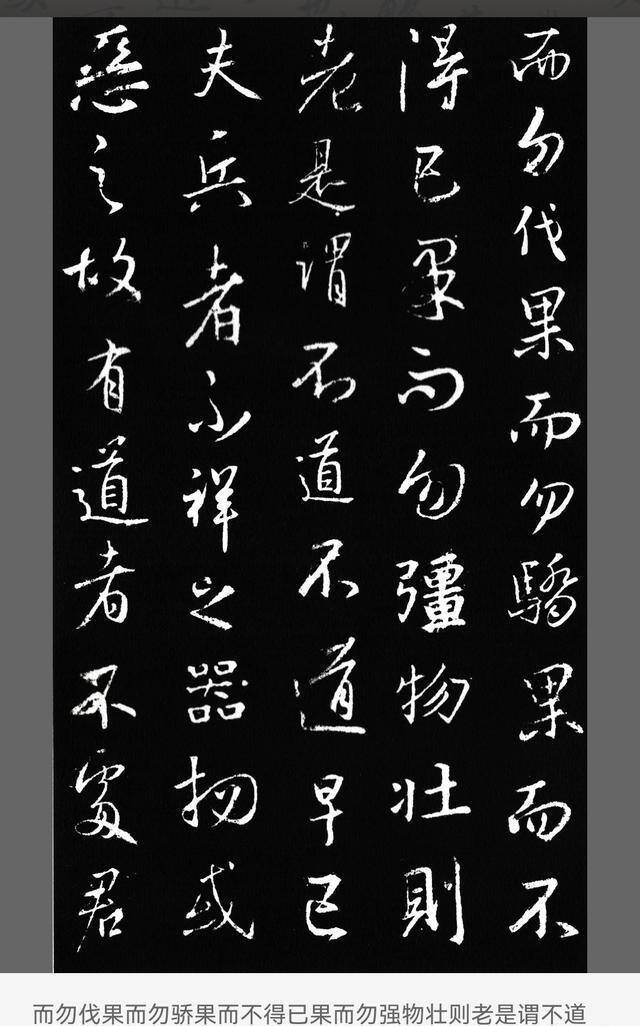 而勿伐果而勿驕果而不
得已果而勿彊物壮則
老是謂不道不道早已
夫兵者不祥之器物或
惡之故有道者不處君
而勿伐果而勿骄果而不得已果而勿强物壮则老是谓不道